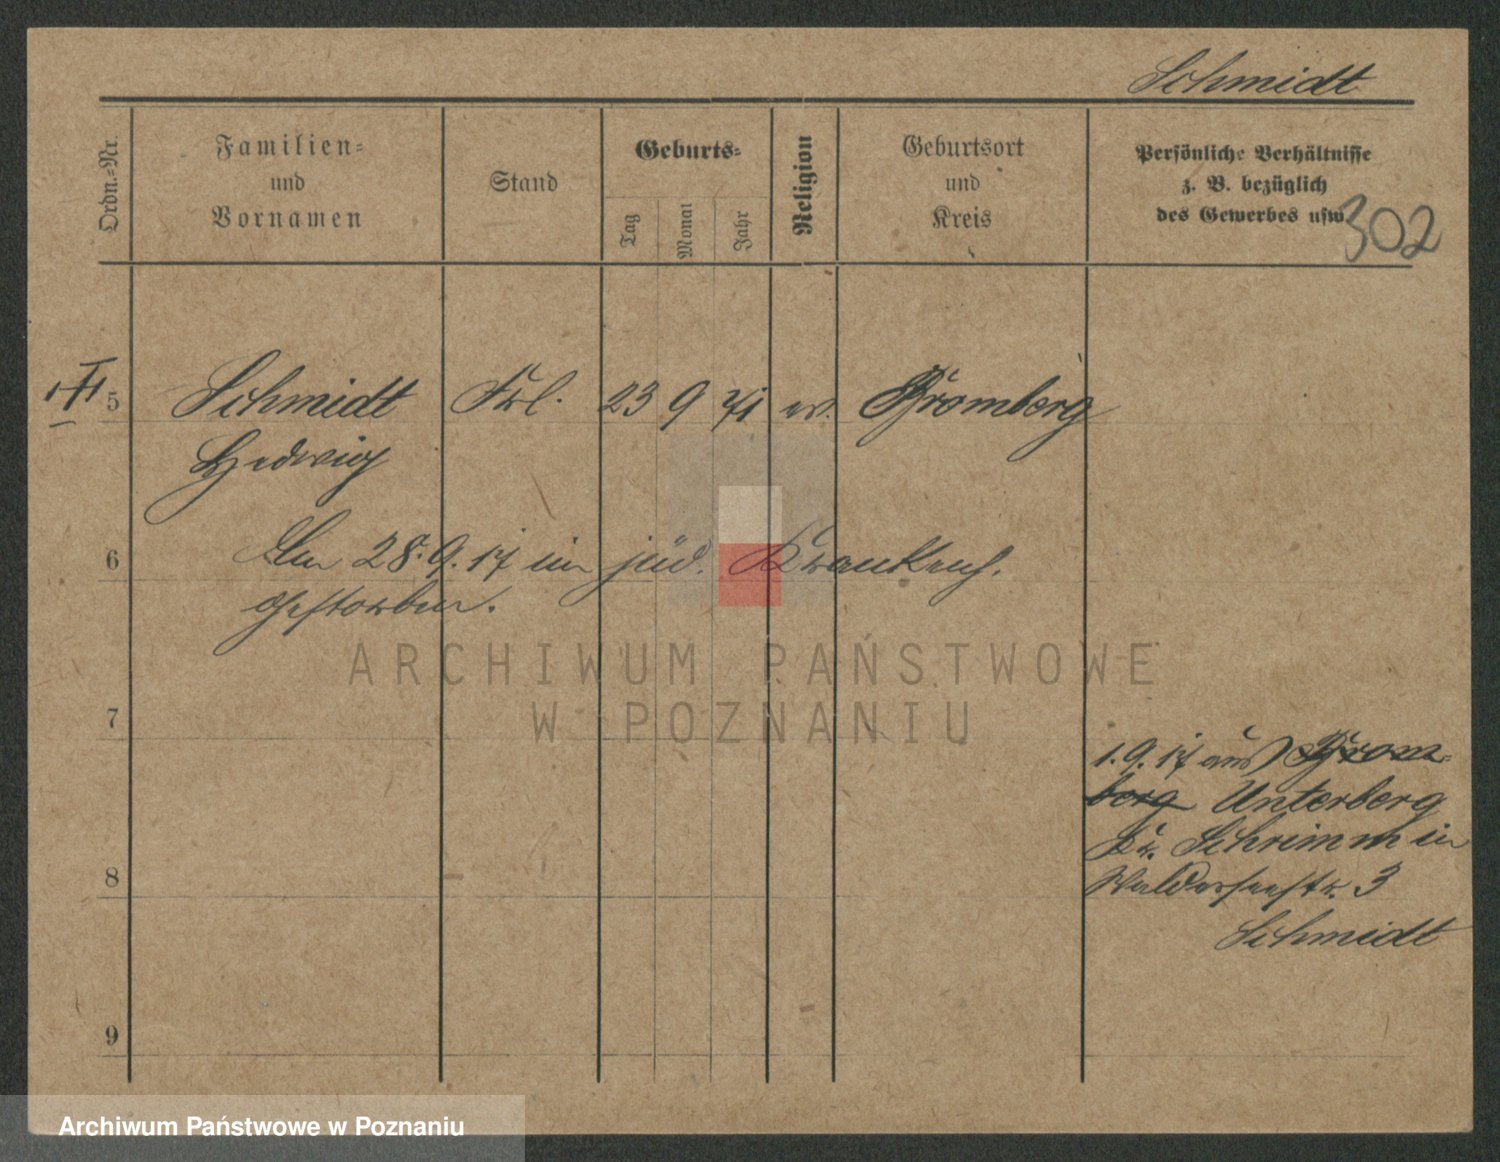 Schmidt
Ordn.-Nr.
Familien-
und
Vornamen
Stand
Geburts-
Tag
Monat
Jahr
Religion
Geburtsort
und
Kreis
Persönliche Verhältnisse
z. B. bezüglich
des Gewerbes usw.
302
5
Schmidt Frl. 23 9 71 ev. Bromberg
Hedwig
6
Am 28.9.17 im jüd. Krankenh.
gestorben.
ARCHIWUM PAŃSTWOWE
W POZNANIU
7
1.9.17 aus Brom-
berg Unterberg
Kr. Schrimm in
8
Walderseestr. 3
Schmidt
9
Archiwum Państwowe w Poznaniu